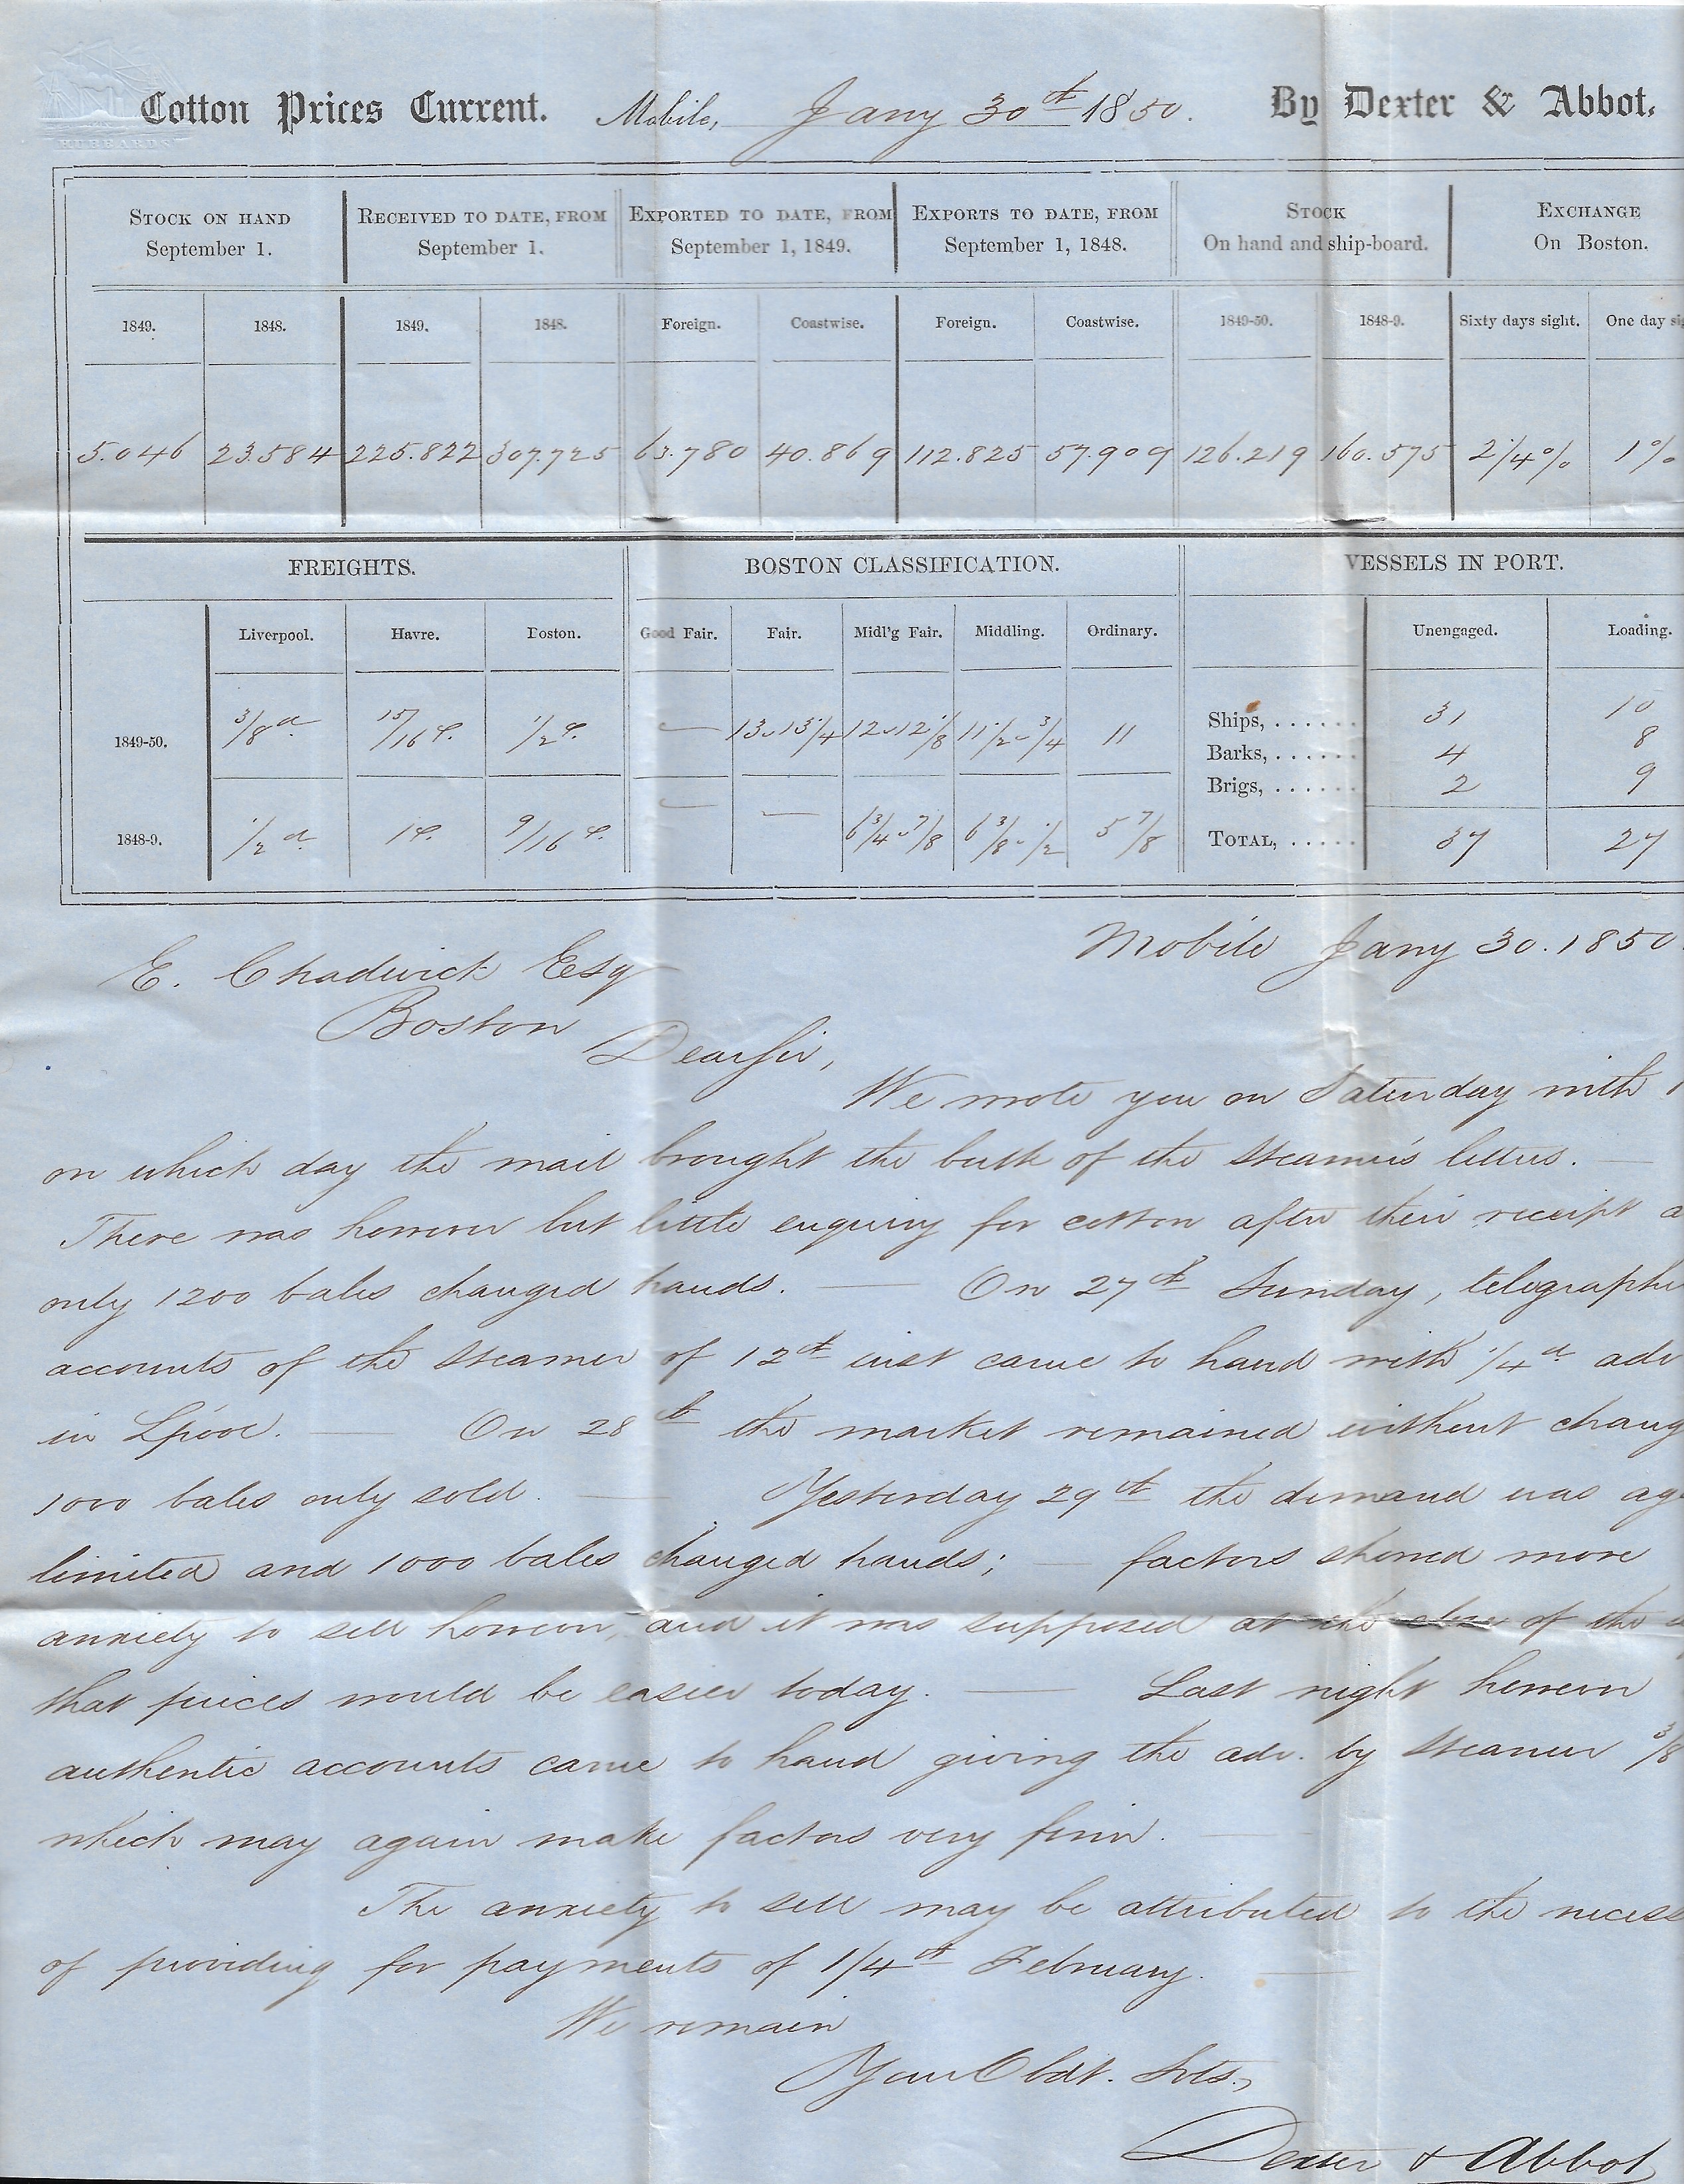 HUBBARD'S
Cotton Prices Current. Mobile, Jany 30th 1850. By Dexter & Abbot.
STOCK ON HAND September 1. RECEIVED TO DATE, FROM September 1. EXPORTED TO DATE, FROM September 1, 1849. EXPORTS TO DATE, FROM September 1, 1848. STOCK On hand and ship-board. EXCHANGE On Boston.
1849. 1848. 1849. 1848. Foreign. Coastwise. Foreign. Coastwise. 1849-50. 1848-9. Sixty days sight. One day
5.046 23.584 225.822 307.725 63.780 40.869 112.825 57.909 126.219 160.575 2 1/4% 1%
FREIGHTS. BOSTON CLASSIFICATION. VESSELS IN PORT.
Liverpool. Havre. Boston. Good Fair. Fair. Midl'g Fair. Middling. Ordinary. Unengaged. Loading.
1849-50. 3/8 d 15/16 c. 1/2 c. — 13 - 13 1/4 12 - 12 1/8 11 1/2 - 3/4 11
Ships, ...... 31 10
Barks, ...... 4 8
Brigs, ...... 2 9
1848-9. 1/2 d 1 c. 9/16 c. — — 6 3/4 - 7/8 6 3/8 - 1/2 5 7/8
TOTAL, ..... 37 27
Mobile Jany 30. 1850.
E. Chadwick Esq
Boston
Dear Sir,
We wrote you on Saturday with
on which day the mail brought the bulk of the steamer's letters. —
There was however but little enquiry for cotton after their receipt a
only 1200 bales changed hands. — On 27th Sunday, telegraphi
accounts of the steamer of 12th inst came to hand with 1/4 d adv
in Lpool. — On 28th the market remained without chang
1000 bales only sold. — Yesterday 29th the demand was ag
limited and 1000 bales changed hands; — factors showed more
anxiety to sell however, and it was supposed at the close of the
that prices would be easier today. — Last night however
authentic accounts came to hand giving the adv. by steamer 3/8
which may again make factors very firm. —
The anxiety to sell may be attributed to the necess
of providing for payments of 1/4th February. —
We remain
Your Obdt. Svts.,
Dexter & Abbot